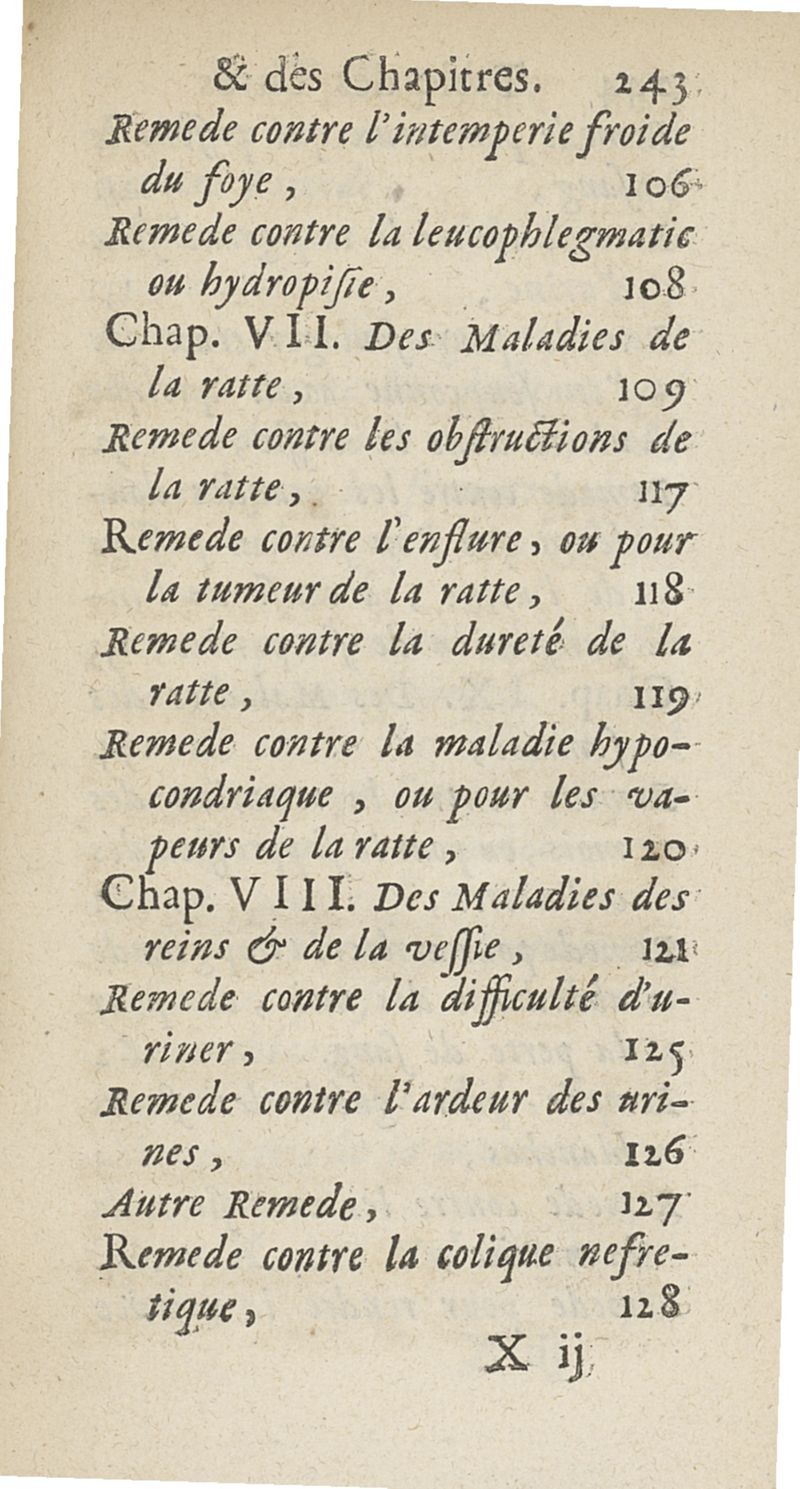 & des Chapitres. 243
Remede contre l'intemperie froide
du foye, 106
Remede contre la leucophlegmatie
ou hydropisie, 108
Chap. VII. Des Maladies de
la ratte, 109
Remede contre les obstructions de
la ratte, 117
Remede contre l'enflure, ou pour
la tumeur de la ratte, 118
Remede contre la dureté de la
ratte, 119
Remede contre la maladie hypo-
condriaque, ou pour les va-
peurs de la ratte, 120
Chap. VIII. Des Maladies des
reins & de la vessie, 121
Remede contre la difficulté d'u-
riner, 125
Remede contre l'ardeur des uri-
nes, 126
Autre Remede, 127
Remede contre la colique nefre-
tique, 128
X ij